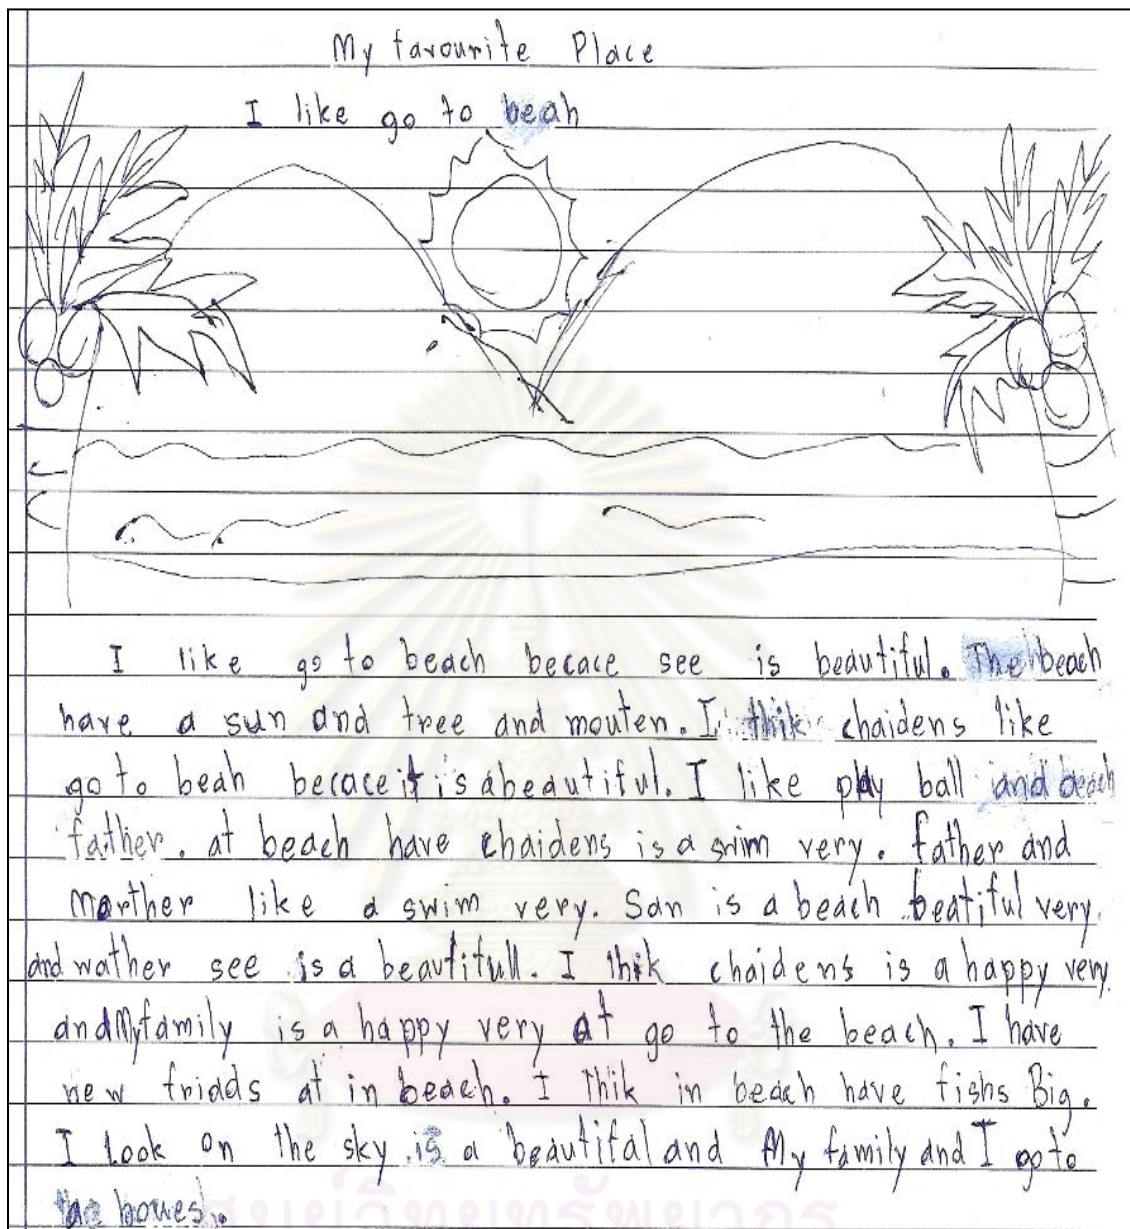 My favourite Place
I like go to beah
I like go to beach becace see is beautiful. The beach
have a sun and tree and mouten. I thik chaidens like
go to beah becace it is a beautiful. I like play ball and beach
father. at beach have chaidens is a swim very. father and
Marther like a swim very. San is a beach beatiful very.
and wather see is a beautifull. I thik chaidens is a happy very
and My family is a happy very at go to the beach. I have
new friads at in beach. I thik in beach have fishs Big.
I look on the sky is a beautifal and My family and I go to
bowes.
ศูนย์วิทยทรัพยากร